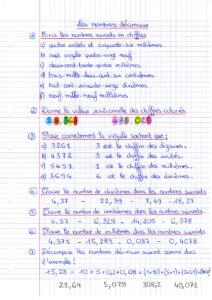 Les nombres décimaux
① Écris les nombres suivants en chiffres
a) quatre unités et cinquante-six millièmes
b) sept virgule quatre-vingt neuf
c) deux-cent-trente-quatre millièmes
d) trois-mille-deux-cent-six centièmes
e) huit-cent-soixante-seize dixièmes
f) neuf-mille-neuf millièmes
② Donne la valeur positionnelle des chiffres coloriés
③ Place correctement la virgule sachant que :
a) 3261 3 est le chiffre des dizaines,
b) 4372 3 est le chiffre des unités,
c) 5691 1 est le chiffre des
d) 3694 6 est le chiffre des
④ Trouve le nombre de dixièmes dans les nombres suivants
4,37 - 22,39 - 7,49 - 18,27
⑤ Trouve le nombre de centièmes dans les nombres suivants
4,37 - 6,329 - 14,205 - 6,378
⑥ Trouve le nombre de millièmes dans les nombres suivants
4,371 - 15,289 - 0,087 - 0,4078
⑦ Décompose les nombres décimaux suivants comme dans
l'exemple :
15,28 = 10 + 5 + 0,2 + 0,08 =
21,64 5,079 308,2 40,071